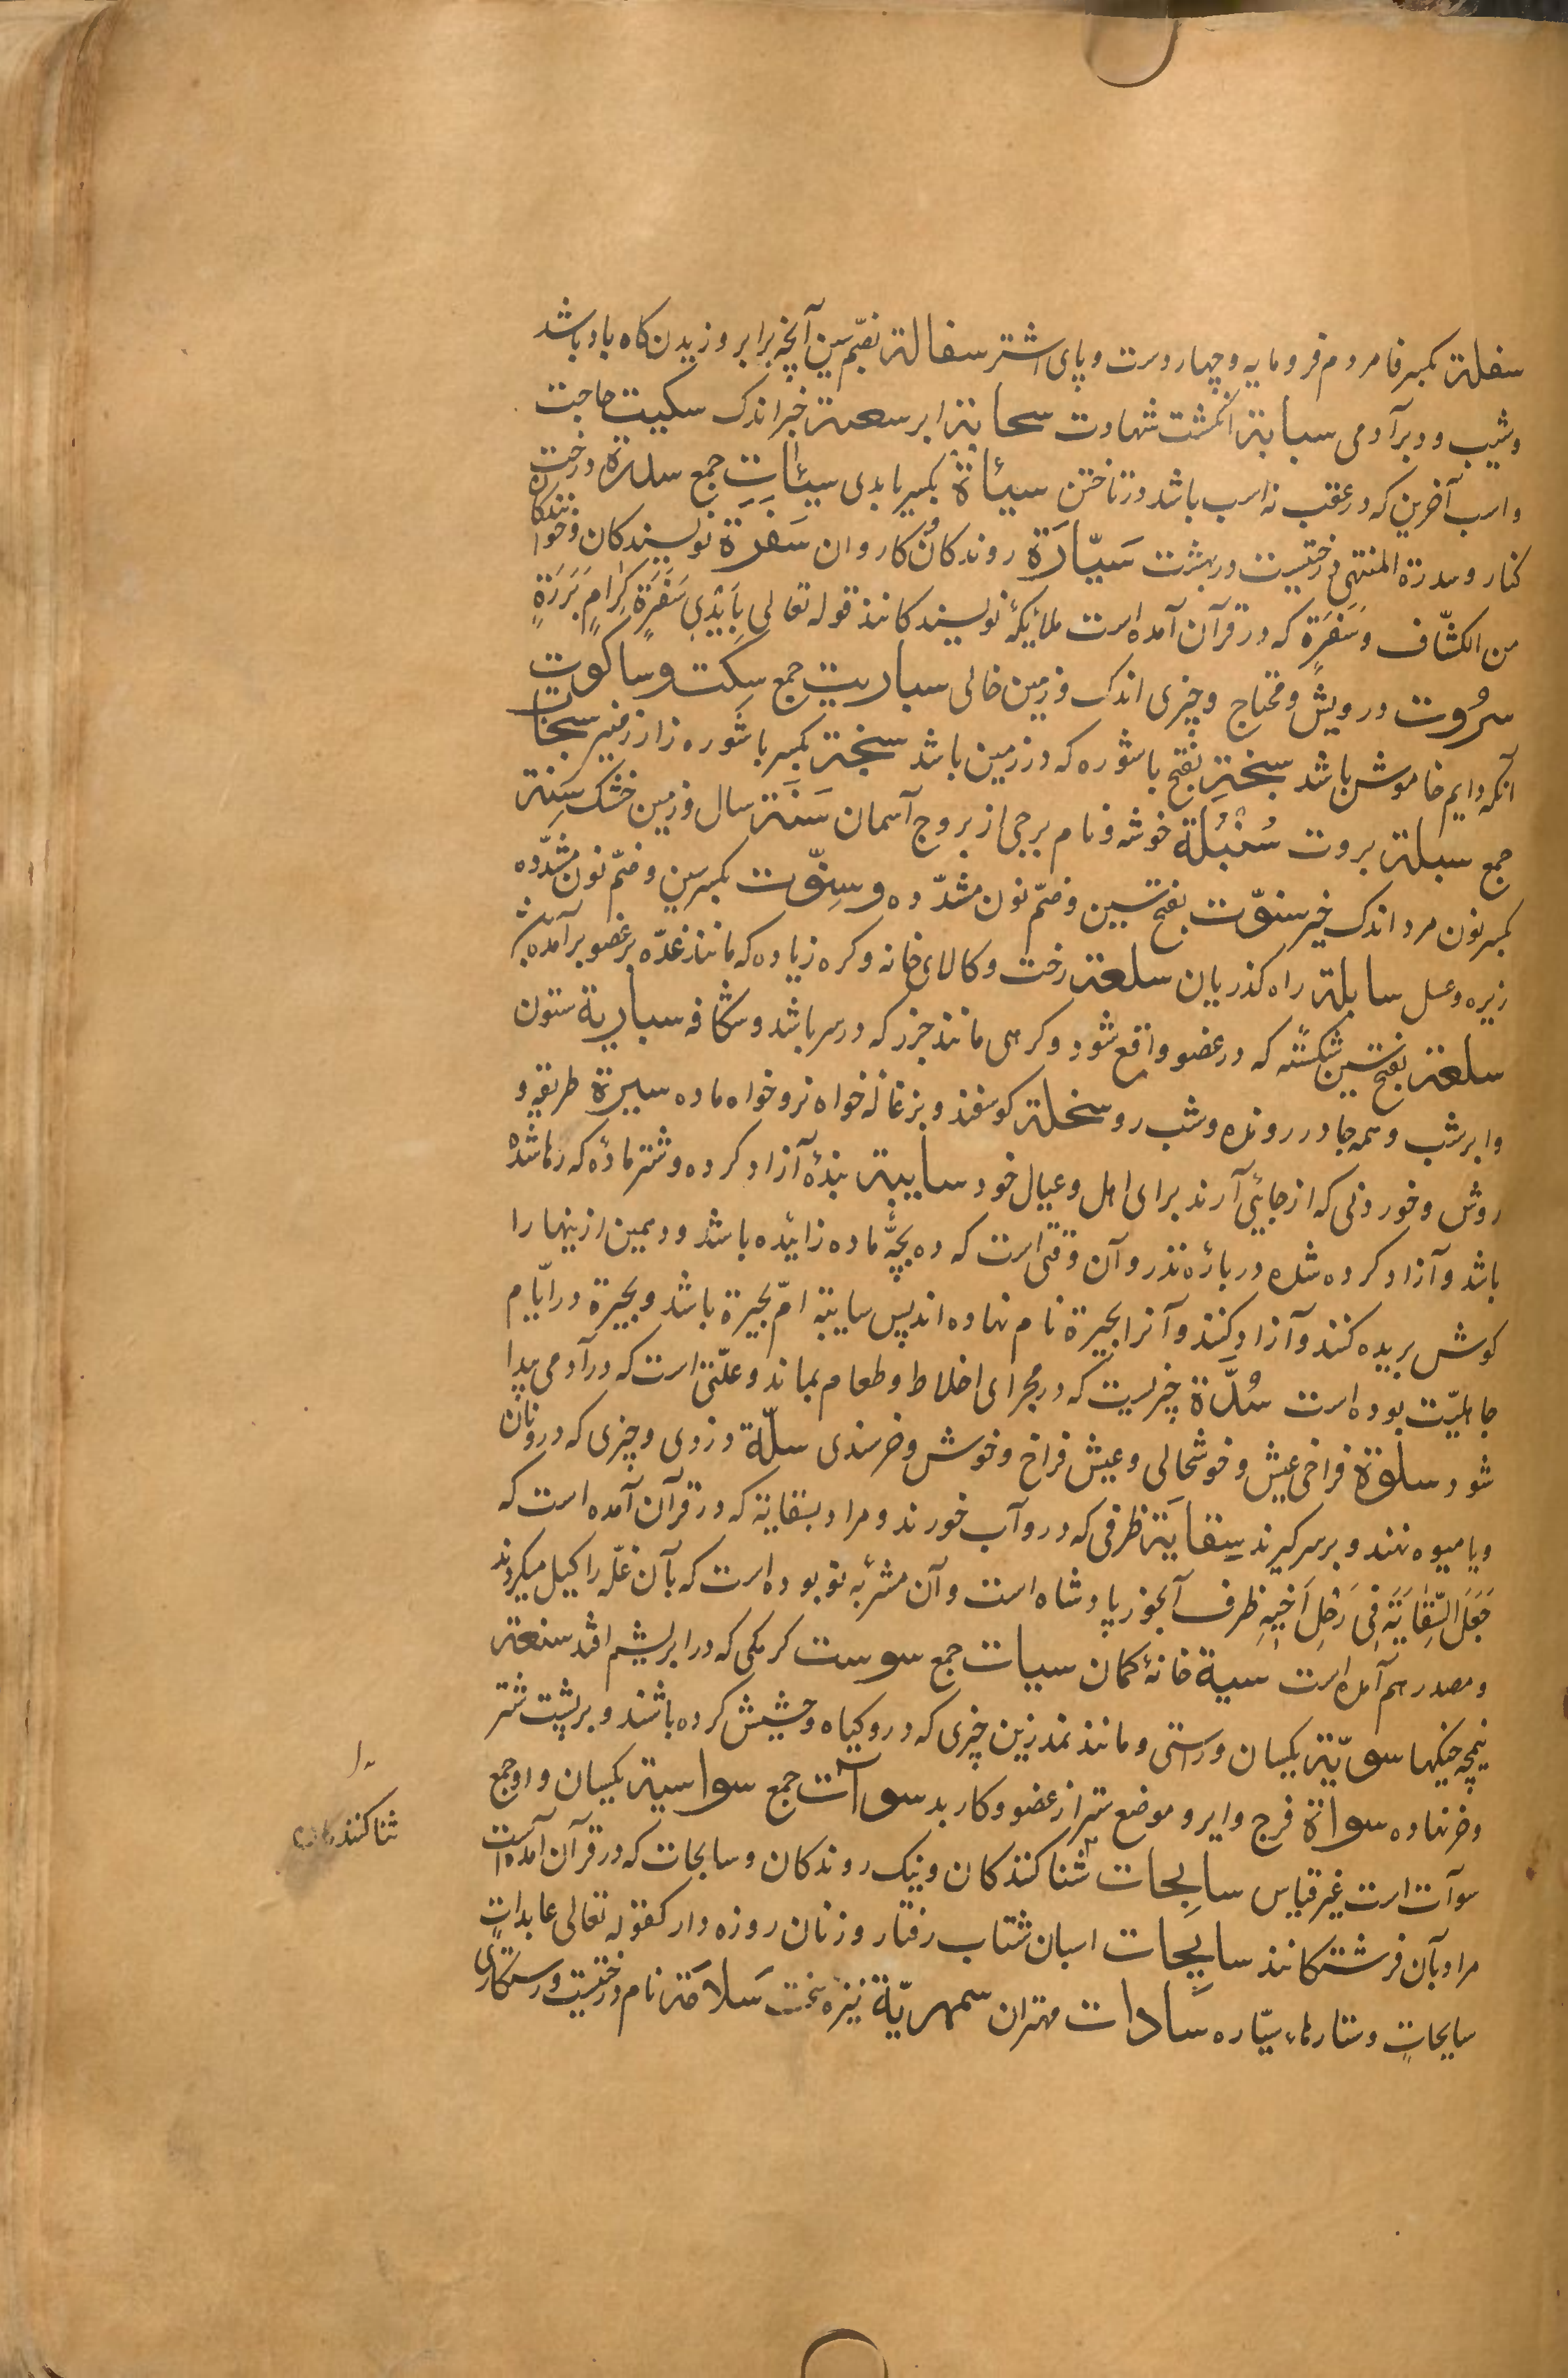 سفلة بکسر فا مردم فرومایه و چهار دست و پای اشتر سفالة بضمّ سین آنچه برابر وزیدن کاه باد باشد
و شیب و دبر آدمی سبابة انکشت شهادت سحابة ابر سعنة خبر اندک سکیت حاجت
و اسب آخرین که در عقب نه اسب باشد در تاختن سیئاة بکسر یا بدی سیئات جمع سدرة درخت
کنار و سدرة المنتهی درختیست در بهشت سَیّارَة روندکان و کاروان سَفَرَة نویسندکان و خوانندکان
من الکشّاف و سَفَرَةٍ که در قرآن آمده است ملائیکهٔ نویسندکانند قوله تعالی بِاَیْدِی سَفَرَةٍ کِرامٍ بَرَرَةٍ
سرُوت درویش و محتاج و چیزی اندک و زمین خالی سباریت جمع سِکت و ساکوت
آنکه دایم خاموش باشد سبخة بفتح با شوره که در زمین باشد سبخة بکسر با شوره زار زمین سبخات
جمع سبلة بروت سُنْبُلَة خوشه و نام برجی از بروج آسمان سَنَة سال و زمین خشک سَنِنة
بکسر نون مرد اندک خیر سنوّت بفتح سین و ضمّ نون مشدّده و سِنوّت بکسر سین و ضمّ نون مشدّده
زیره و عسل سابلة راه کذریان سلعة رخت و کالای خانه و کره زیاده که مانند غدّه بر عضو برآمده باشد
سلعة بفتح سین شکسته که در عضو واقع شود و کرهی مانند جزر که در سر باشد و شکافه ساریة ستون
و ابر شب و همه جا در رونده و شب رو سخلة کوسفند و بزغاله خواه نر و خواه ماده سیرة طریقه و
روش و خوردنی که از جائی آرند برای اهل و عیال خود سایبة بندهٔ آزاد کرده و شتر ماده که رها شده
باشد و آزاد کرده شده در بارهٔ نذر و آن وقتی است که ده بچّهٔ ماده زائیده باشد و دهمین ازینها را
کوش بریده کنند و آزاد کنند و آنرا بحیرة نام نهاده اند پس سایبة امّ بحیرة باشد و بحیرة در ایّام
جاهلیّت بوده است سُدَّة چیزیست که در مجرای اخلاط و طعام بماند و علّتی است که در آدمی پیدا
شود سلوة فراخی عیش و خوشحالی و عیش فراخ و خوش و خرسندی سلّة دزدی و چیزی که در و نان
و یا میوه نهند و بر سر کیرند سِقایَة ظرفی که در و آب خورند و مراد بسقایة که در قرآن آمده است که
جَعَلَ السِّقایَةَ فِی رَحْلِ اَخیِهِ ظرف آبخور پادشاه است و آن مشربهٔ بوده است که بآن غلّه را کیل میکردند
و مصدر هم آمده است سیة خانهٔ کمان سیات جمع سوست کرمکی که در ابریشم افتد سنعة
نیمچه جنکها سویّة یکسان و راستی و مانند نمد زین چیزی که در و کیاه و حشیش کرده باشند و بر پشت شتر
و خر نهاده سواة فرج و ایر و موضع ستر از عضو و کار بد سوآت جمع سواسیة یکسان و او جمع
سوآت است غیر قیاس سابحات شنا کنندکان و نیک روندکان و سابحات که در قرآن آمده است
مراد بآن فرشتکانند سایحات اسبان شتاب رفتار و زنان روزه دار کقوله تعالی عابداتٍ
سایحاتٍ و ستارهاء سیّاره سَادات مهتران سمهریّة نیزه سخت سَلامَة نام درختیست و رستکاری
ثنا کنندکان